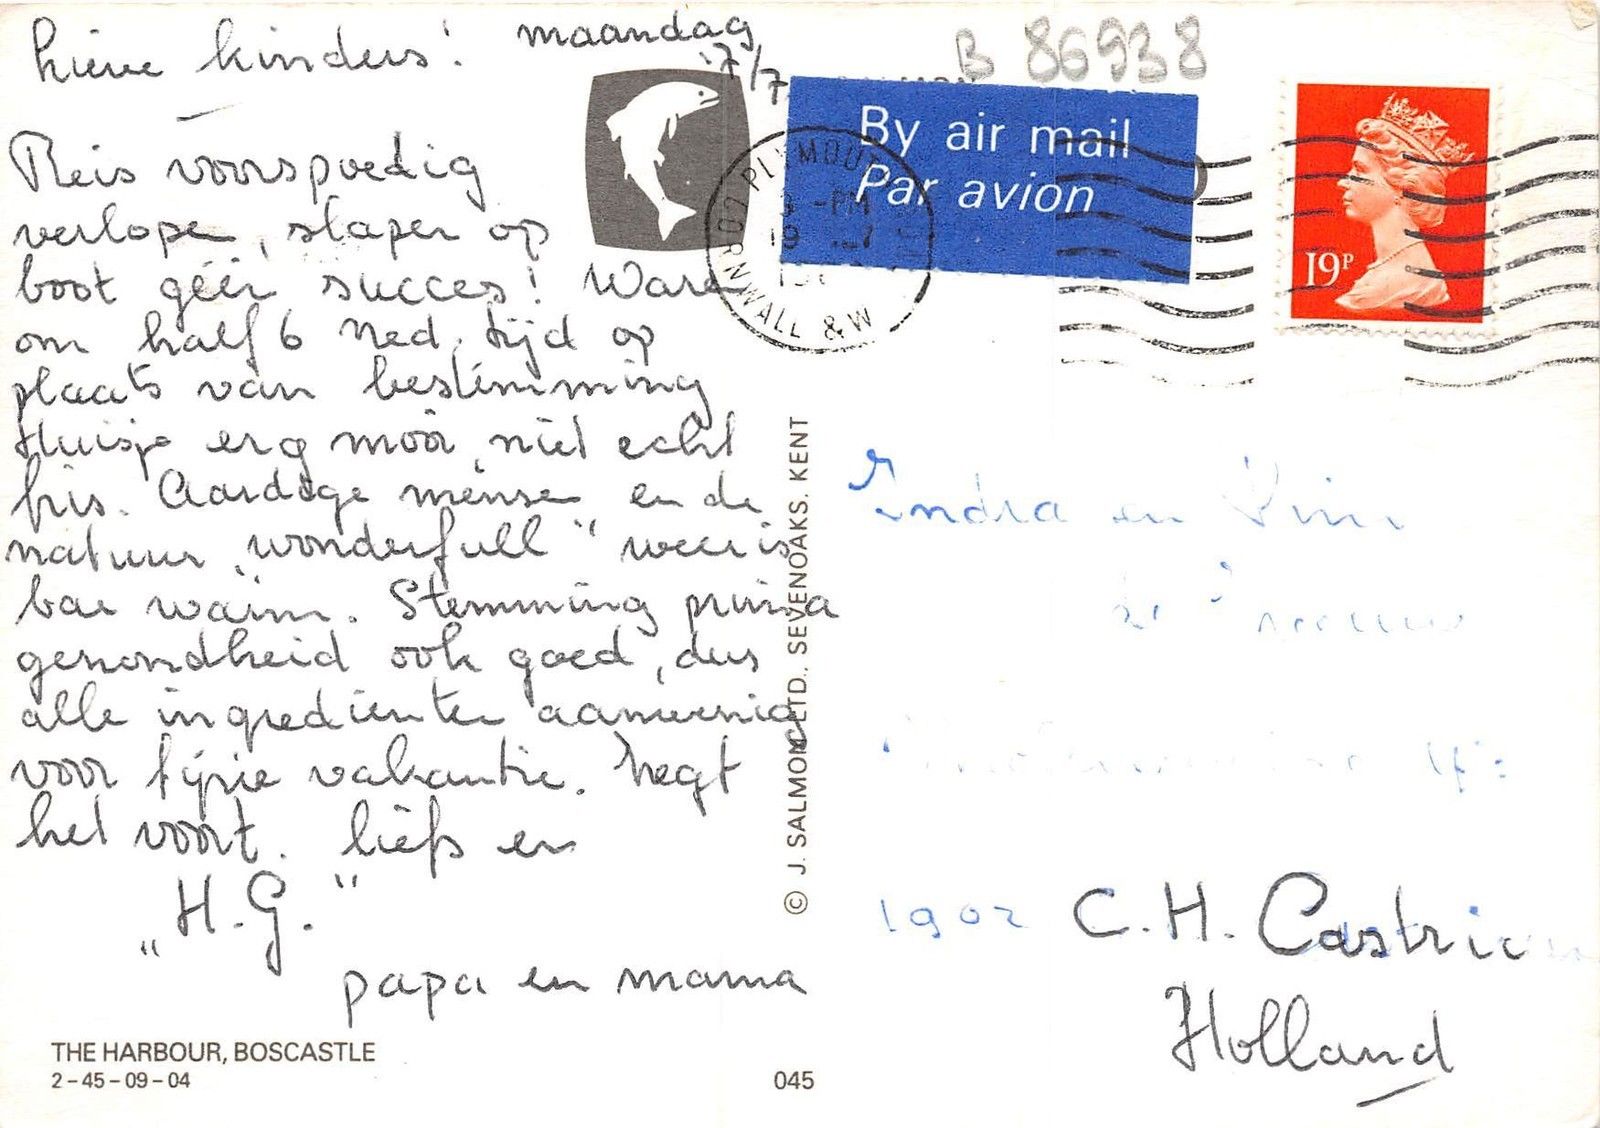 Lieve kinders! maandag
17/7
B 86938
Reis voorspoedig
verlopen, slapen op
boot géén succes! Waren
om half 6 Ned. tijd op
plaats van bestemming
Huisje erg mooi, niet echt
fris. Aardige mensen en de
natuur „wonderfull" weer is
bar warm. Stemming prima
gezondheid ook goed, dus
alle ingrediënten aanwezig
voor fijne vakantie. Zegt
het voort. liefs en
„H.G."
papa en mama
THE HARBOUR, BOSCASTLE
2-45-09-04
045
© J. SALMON LTD., SEVENOAKS, KENT
By air mail
Par avion
PLYMOUTH
-PM
19
CORNWALL & W
19P
Indra en
1902 C.H. Castricum
Holland